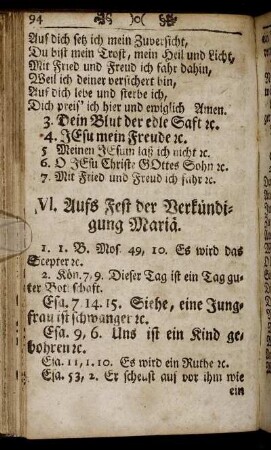 94 )o(
Auf dich setz ich mein Zuversicht,
Du bist mein Trost, mein Heil und Licht,
Mit Fried und Freud ich fahr dahin,
Weil ich deiner versichert bin,
Auf dich lebe und sterbe ich,
Dich preis' ich hier und ewiglich Amen.
3. Dein Blut der edle Saft ꝛc.
4. JEsu mein Freude ꝛc.
5 Meinen JEsum laß ich nicht ꝛc.
6. O JEsu Christ GOttes Sohn ꝛc.
7. Mit Fried und Freud ich fahr ꝛc.
VI. Aufs Fest der Verkündi-
gung Mariä.
1. 1. B. Mos. 49, 10. Es wird das
Scepter ꝛc.
2. Kön. 7, 9. Dieser Tag ist ein Tag gu-
ter Botschaft.
Esa. 7. 14. 15. Siehe, eine Jung-
frau ist schwanger ꝛc.
Esa. 9, 6. Uns ist ein Kind ge-
bohren ꝛc.
Esa. 11, 1. 10. Es wird ein Ruthe ꝛc.
Esa. 53, 2. Er scheust auf vor ihm wie
ein